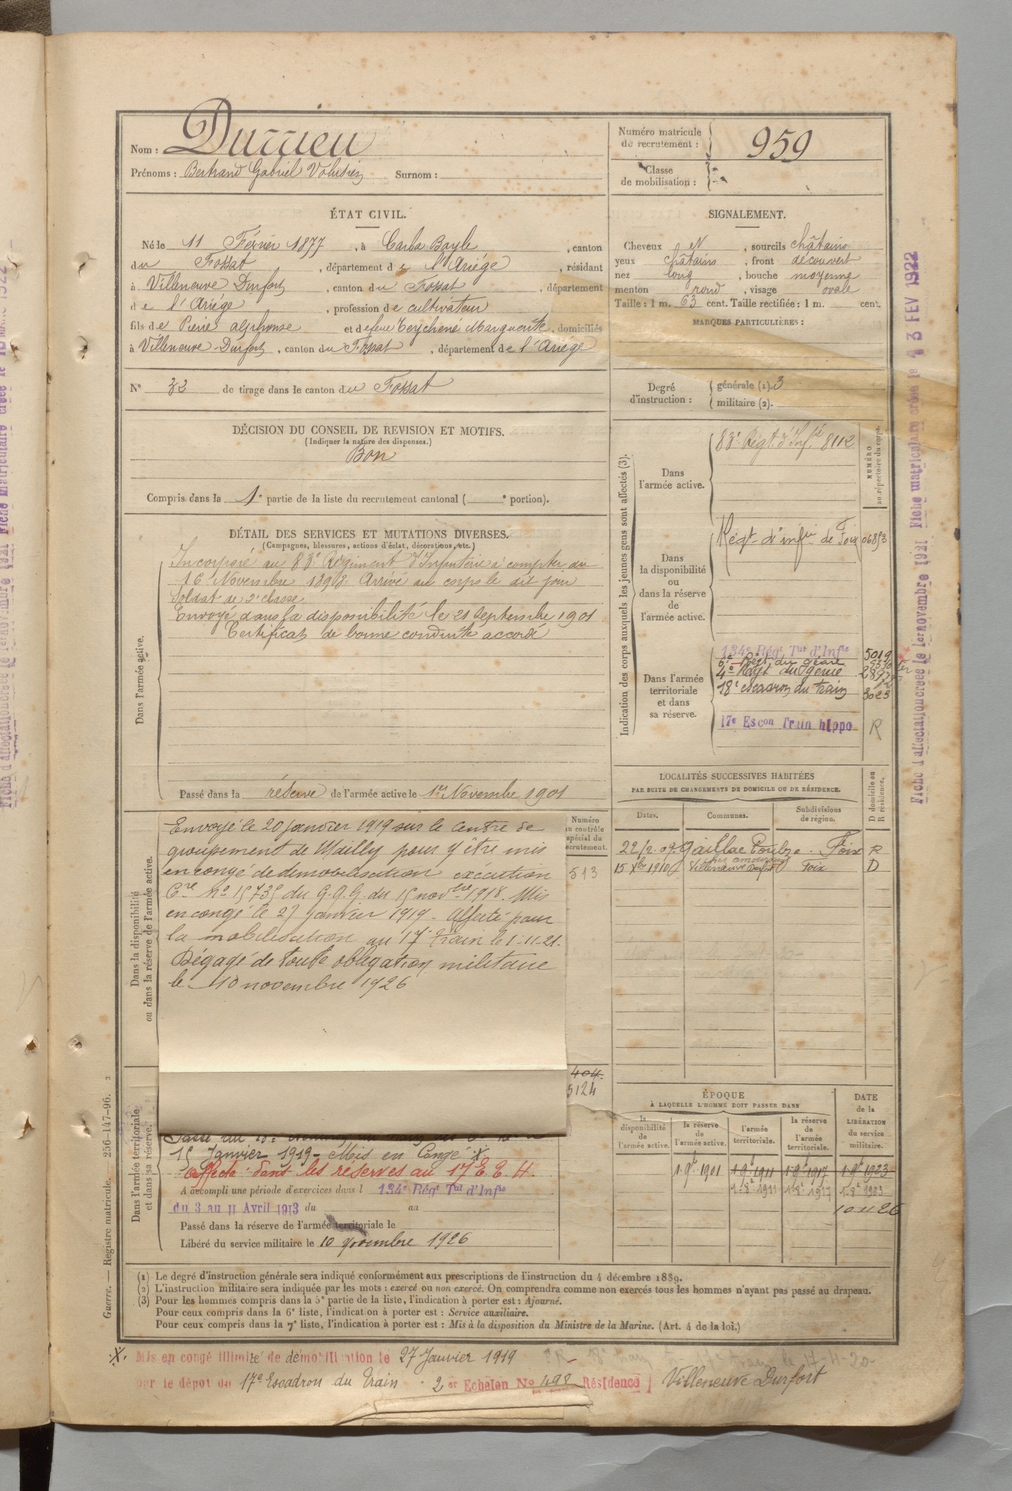 Nom : Durrieu
Prénoms : Bertrand Gabriel Volusien Surnom :
Numéro matricule de recrutement : 959
Classe de mobilisation :
ÉTAT CIVIL.
Né le 11 Février 1877, à Carla Bayle, canton
du Fossat, département de l'Ariége, résidant
à Villeneuve Durfort, canton du Fossat, département
de l'Ariége, profession de cultivateur
fils de Pierre alphonse et de feue Teychené Marguerite, domiciliés
à Villeneuve-Durfort, canton du Fossat, département de l'Ariége
N° 33 de tirage dans le canton du Fossat
SIGNALEMENT.
Cheveux N, sourcils châtains
yeux châtains, front découvert
nez long, bouche moyenne
menton rond, visage ovale
Taille : 1 m. 63 cent. Taille rectifiée : 1 m. cent.
MARQUES PARTICULIÈRES :
Degré d'instruction : générale (1). 3
militaire (2).
DÉCISION DU CONSEIL DE REVISION ET MOTIFS.
(Indiquer la nature des dispenses.)
Bon
Compris dans la 1e partie de la liste du recrutement cantonal ( e portion).
DÉTAIL DES SERVICES ET MUTATIONS DIVERSES.
(Campagnes, blessures, actions d'éclat, décorations, etc.)
Dans l'armée active.
Incorporé au 83e Régiment d'Infanterie à compter du
16 Novembre 1898 Arrivé au corps le dit jour
Soldat de 2e classe
Envoyé dans la disponibilité le 21 Septembre 1901
Certificat de bonne conduite accordé
Passé dans la réserve de l'armée active le 1er Novembre 1901
Indication des corps auxquels les jeunes gens sont affectés (3).
NUMÉRO au répertoire du corps.
Dans l'armée active.
83e Régt d'Infie 8112
Dans la disponibilité ou dans la réserve de l'armée active.
Régt d'infie de Foix
Dans l'armée territoriale et dans sa réserve.
134e Régt Tal d'Infie 5019
6e Régt du génie
4e Régt du Génie
18e escadron du train 3023
17e Escon Train hippo R
LOCALITÉS SUCCESSIVES HABITÉES
PAR SUITE DE CHANGEMENTS DE DOMICILE OU DE RÉSIDENCE.
Dates. Communes. Subdivisions de région. D domicile ou R résidence.
22/2 07 Gaillac Toulza Foix R
15 Xbre 1910 Villeneuve Durfort Foix D
Dans la disponibilité ou dans la réserve de l'armée active.
Numéro au contrôle spécial du recrutement.
513
Envoyé le 20 janvier 1919 sur le centre de
groupement de Mailly pour y être mis
en congé de démobilisation exécution
Cre No 15735 du G.Q.G. du 15 novbre 1918. Mis
en congé le 27 Janvier 1919. Affecté pour
la mobilisation au 17e train le 1-11-21.
Dégagé de toute obligation militaire
le 10 novembre 1926
404
5124
Dans l'armée territoriale et dans sa réserve.
15 Janvier 1919 - Mis en Congé X
Affecté dans les réserves au 17 E E H.
A accompli une période d'exercices dans l 134e Régt Tal d'Infie
du 3 au 11 Avril 1913 du au
Passé dans la réserve de l'armée territoriale le
Libéré du service militaire le 10 novembre 1926
ÉPOQUE
À LAQUELLE L'HOMME DOIT PASSER DANS
la disponibilité de l'armée active. la réserve de l'armée active. l'armée territoriale. la réserve de l'armée territoriale.
DATE de la LIBÉRATION du service militaire.
1-9e 1901 1-9e 1911 1-9e 1917 1-9e 1923
1-8e 1911 1-8e 1917 1-8e 1923
10 11 26
(1) Le degré d'instruction générale sera indiqué conformément aux prescriptions de l'instruction du 4 décembre 1889.
(2) L'instruction militaire sera indiquée par les mots : exercé ou non exercé. On comprendra comme non exercés tous les hommes n'ayant pas passé au drapeau.
(3) Pour les hommes compris dans la 5e partie de la liste, l'indication à porter est : Ajourné.
Pour ceux compris dans la 6e liste, l'indication à porter est : Service auxiliaire.
Pour ceux compris dans la 7e liste, l'indication à porter est : Mis à la disposition du Ministre de la Marine. (Art. 4 de la loi.)
X. Mis en congé illimité de démobilisation le 27 Janvier 1919
par le dépôt du 17e Escadron du Train. 2 er Echelon No 498 Résidence Villeneuve Durfort
Guerre. — Registre matricule. 256-147-96.
Fiche d'affectation créée le 1er novembre 1921 Fiche matriculaire créée le 13 FEV 1922